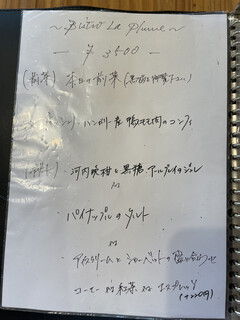 ～ Bistro La Plume ～
— ¥ 3500 —
(前菜) 本日の前菜 (黒板を御覧下さい)
ハンガリー産 鴨モモ肉のコンフィ
河内晩柑と黒糖、アールグレイのジュレ
or
パイナップルのタルト
or
アイスクリームとシャーベットの盛り合わせ
コーヒー or 紅茶 or エスプレッソ
(+220円)